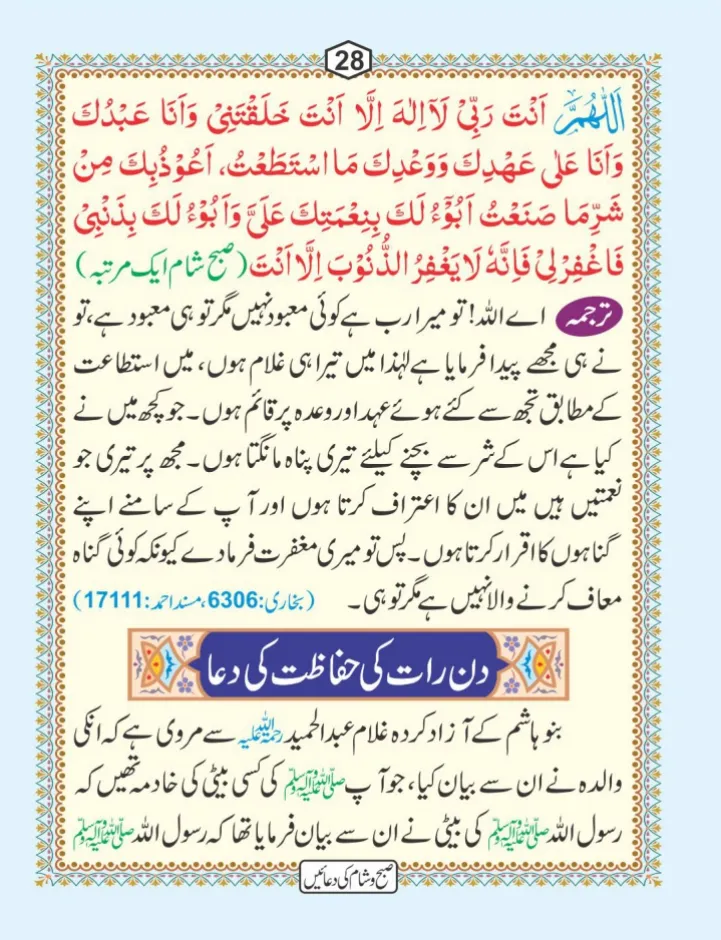 28
اَللّٰهُمَّ اَنْتَ رَبِّیْ لَاۤ اِلٰهَ اِلَّا اَنْتَ خَلَقْتَنِیْ وَاَنَا عَبْدُكَ
وَاَنَا عَلٰی عَهْدِكَ وَوَعْدِكَ مَا اسْتَطَعْتُ، اَعُوْذُبِكَ مِنْ
شَرِّمَا صَنَعْتُ اَبُوْٓءُ لَكَ بِنِعْمَتِكَ عَلَیَّ وَاَبُوْٓءُ لَكَ بِذَنْبِیْ
فَاغْفِرْلِیْ فَاِنَّهٗ لَا یَغْفِرُ الذُّنُوْبَ اِلَّا اَنْتَ (صبح شام ایک مرتبہ)
ترجمہ اے اللہ! تو میرا رب ہے کوئی معبود نہیں مگر تو ہی معبود ہے، تو
نے ہی مجھے پیدا فرمایا ہے لہٰذا میں تیرا ہی غلام ہوں، میں استطاعت
کے مطابق تجھ سے کئے ہوئے عہد اور وعدہ پر قائم ہوں۔ جو کچھ میں نے
کیا ہے اس کے شر سے بچنے کیلئے تیری پناہ مانگتا ہوں۔ مجھ پر تیری جو
نعمتیں ہیں میں ان کا اعتراف کرتا ہوں اور آپ کے سامنے اپنے
گناہوں کا اقرار کرتا ہوں۔ پس تو میری مغفرت فرمادے کیونکہ کوئی گناہ
معاف کرنے والا نہیں ہے مگر تو ہی۔ (بخاری:6306، مسند احمد:17111)
دن رات کی حفاظت کی دعا
بنو ہاشم کے آزاد کردہ غلام عبدالحمید رحمۃ اللہ علیہ سے مروی ہے کہ انکی
والدہ نے ان سے بیان کیا، جو آپ صلی اللہ علیہ وآلہ وسلم کی کسی بیٹی کی خادمہ تھیں کہ
رسول اللہ صلی اللہ علیہ وآلہ وسلم کی بیٹی نے ان سے بیان فرمایا تھا کہ رسول اللہ صلی اللہ علیہ وآلہ وسلم
صبح و شام کی دعائیں